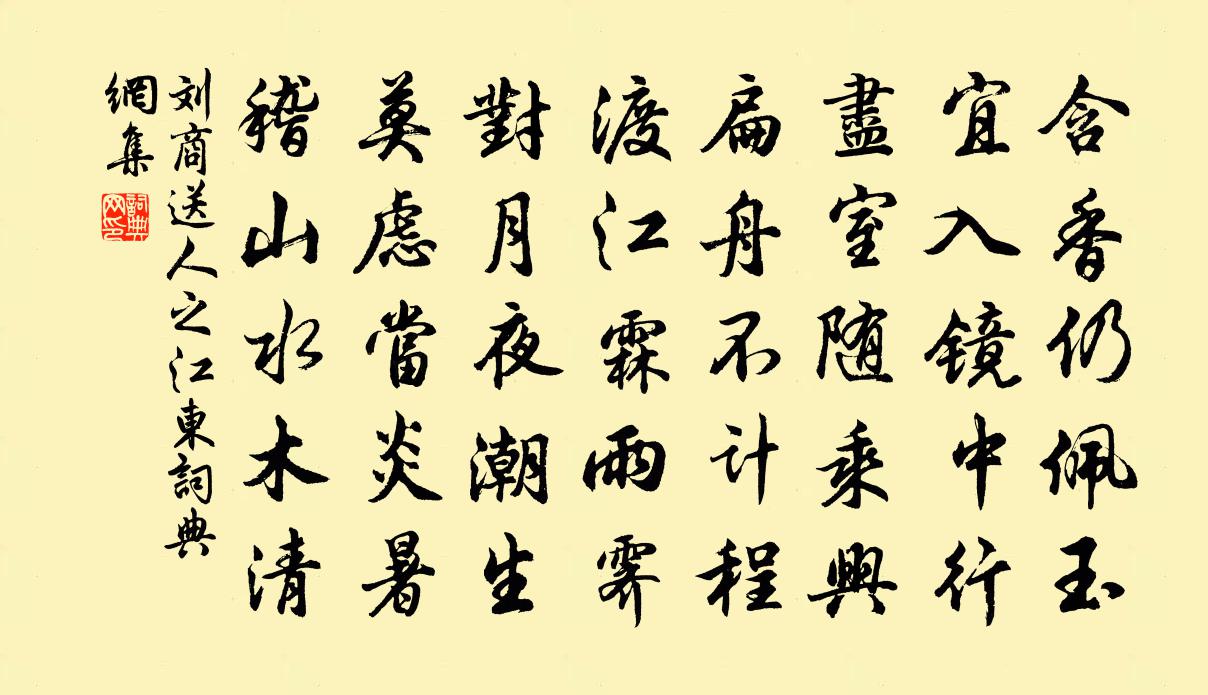 含香仍佩玉
宜入镜中行
盡室随乘興
扁舟不計程
渡江霖雨霽
對月夜潮生
莫慮當炎暑
稽山水木清
刘商送人之江東詞典
網集
詞典
网印